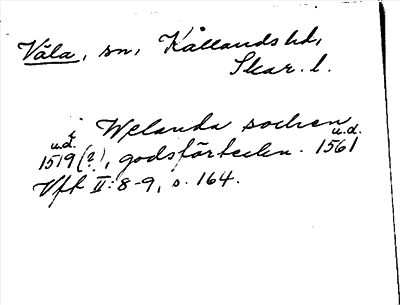 Våla, sn, Kållands hd,
Skar. l.
i Welanda sochen
u.d. 1519(?), godsförteckn. u.d. 1561
Vft II:8-9, s. 164.